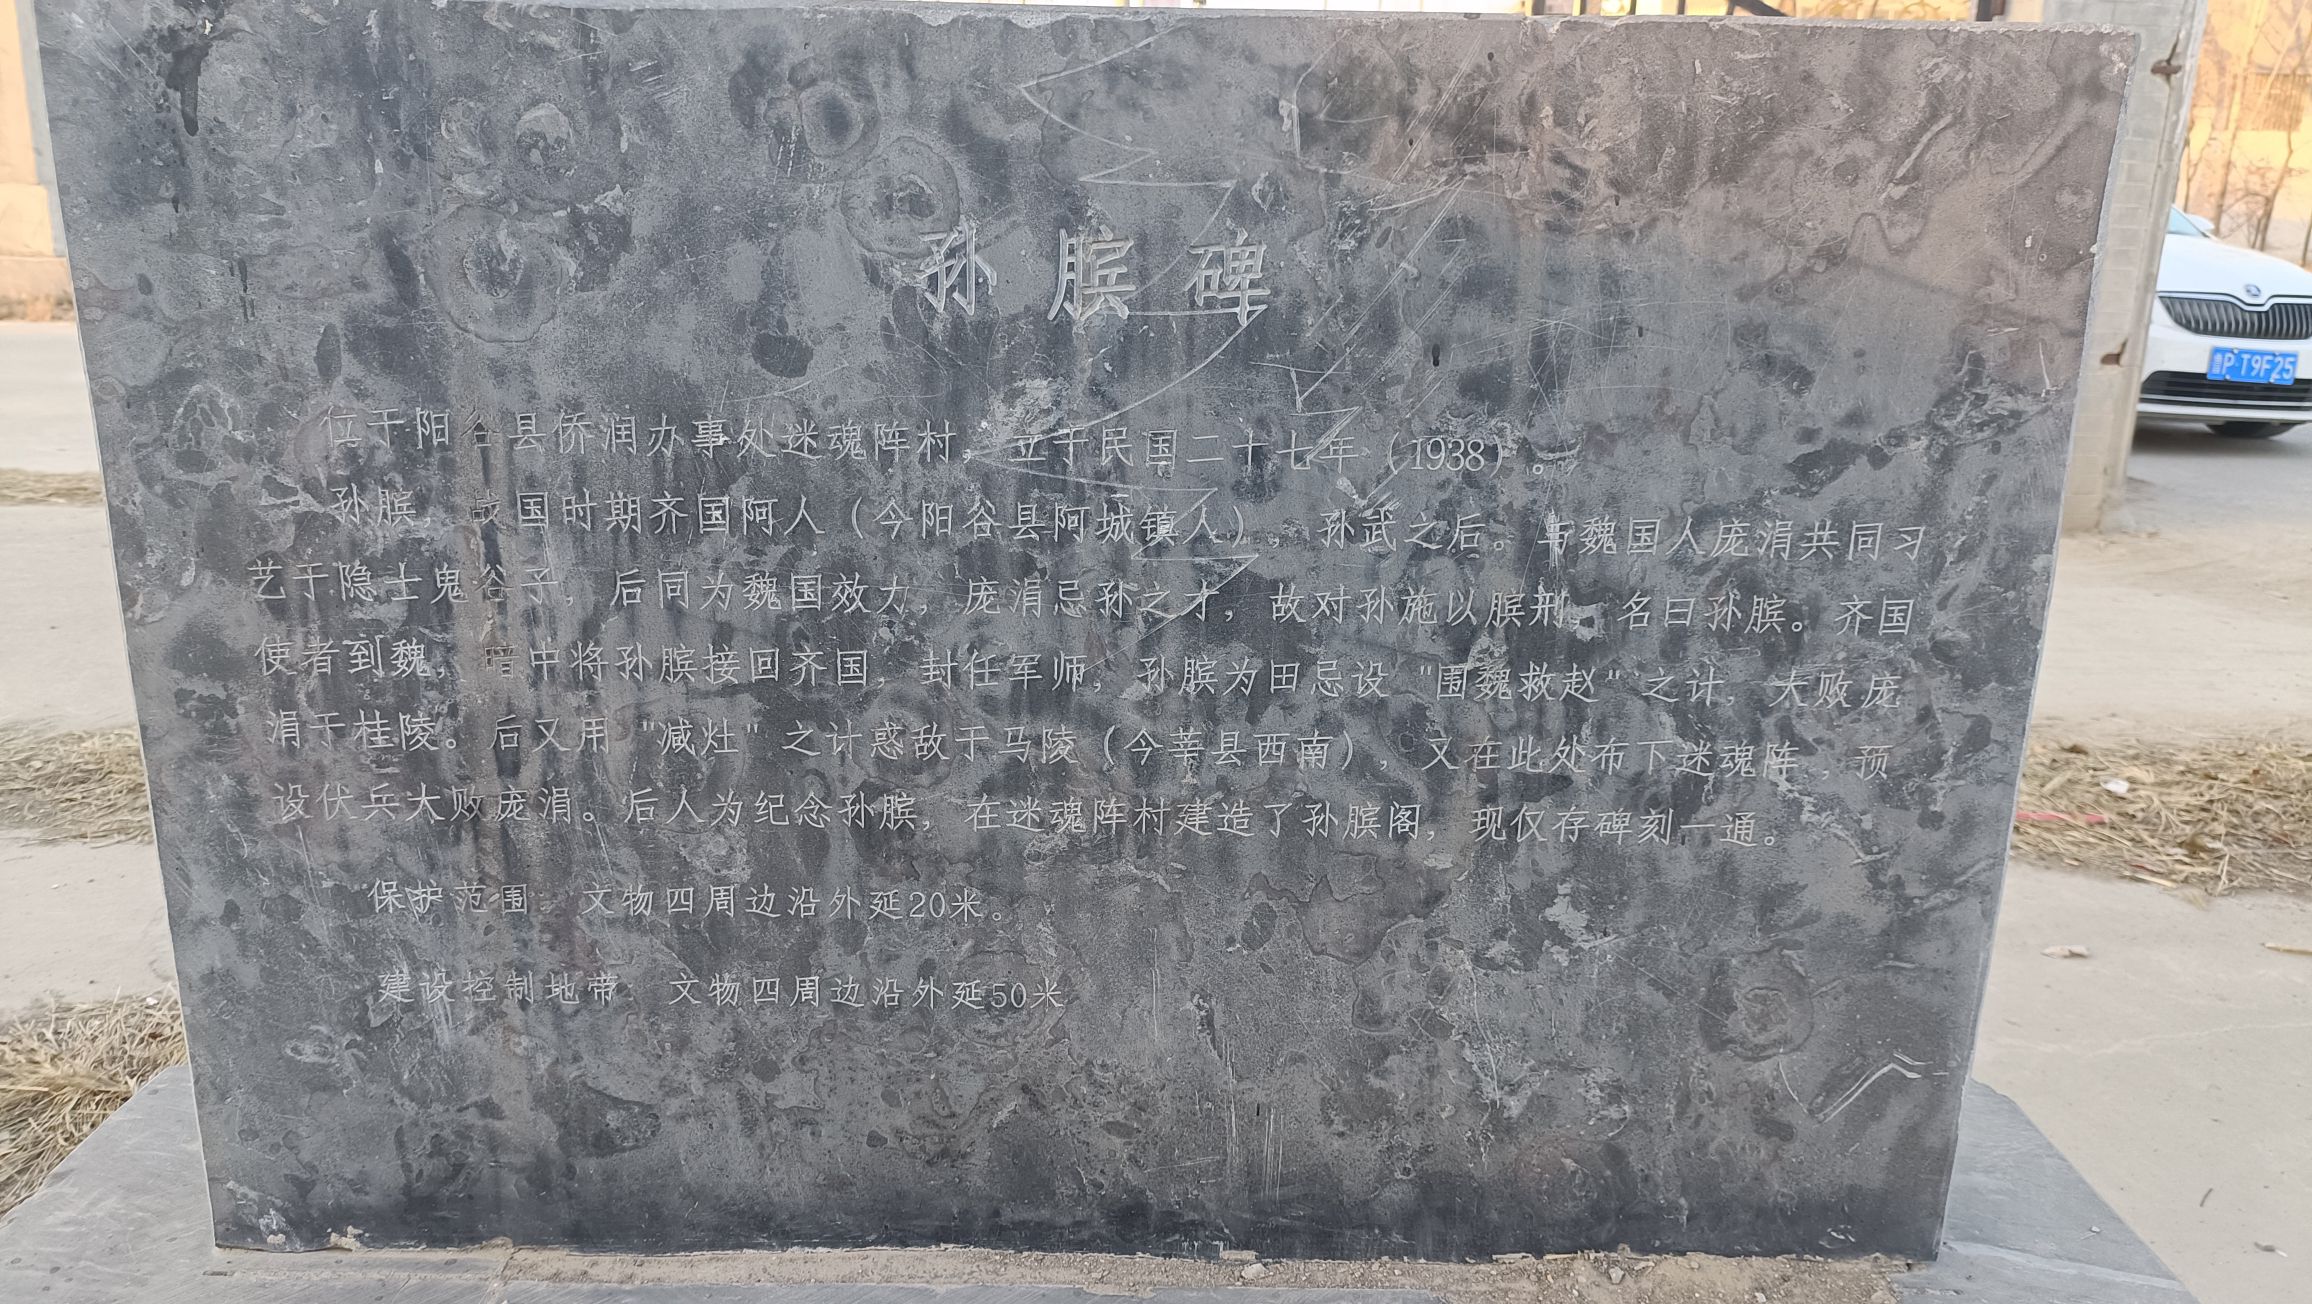 孙膑碑
位于阳谷县侨润办事处迷魂阵村，立于民国二十七年（1938）。
孙膑，战国时期齐国阿人（今阳谷县阿城镇人），孙武之后。与魏国人庞涓共同习
艺于隐士鬼谷子，后同为魏国效力，庞涓忌孙之才，故对孙施以膑刑，名曰孙膑。齐国
使者到魏，暗中将孙膑接回齐国，封任军师，孙膑为田忌设"围魏救赵"之计，大败庞
涓于桂陵。后又用"减灶"之计惑敌于马陵（今莘县西南），又在此处布下迷魂阵，预
设伏兵大败庞涓。后人为纪念孙膑，在迷魂阵村建造了孙膑阁，现仅存碑刻一通。
保护范围：文物四周边沿外延20米。
建设控制地带：文物四周边沿外延50米
鲁P T9F25